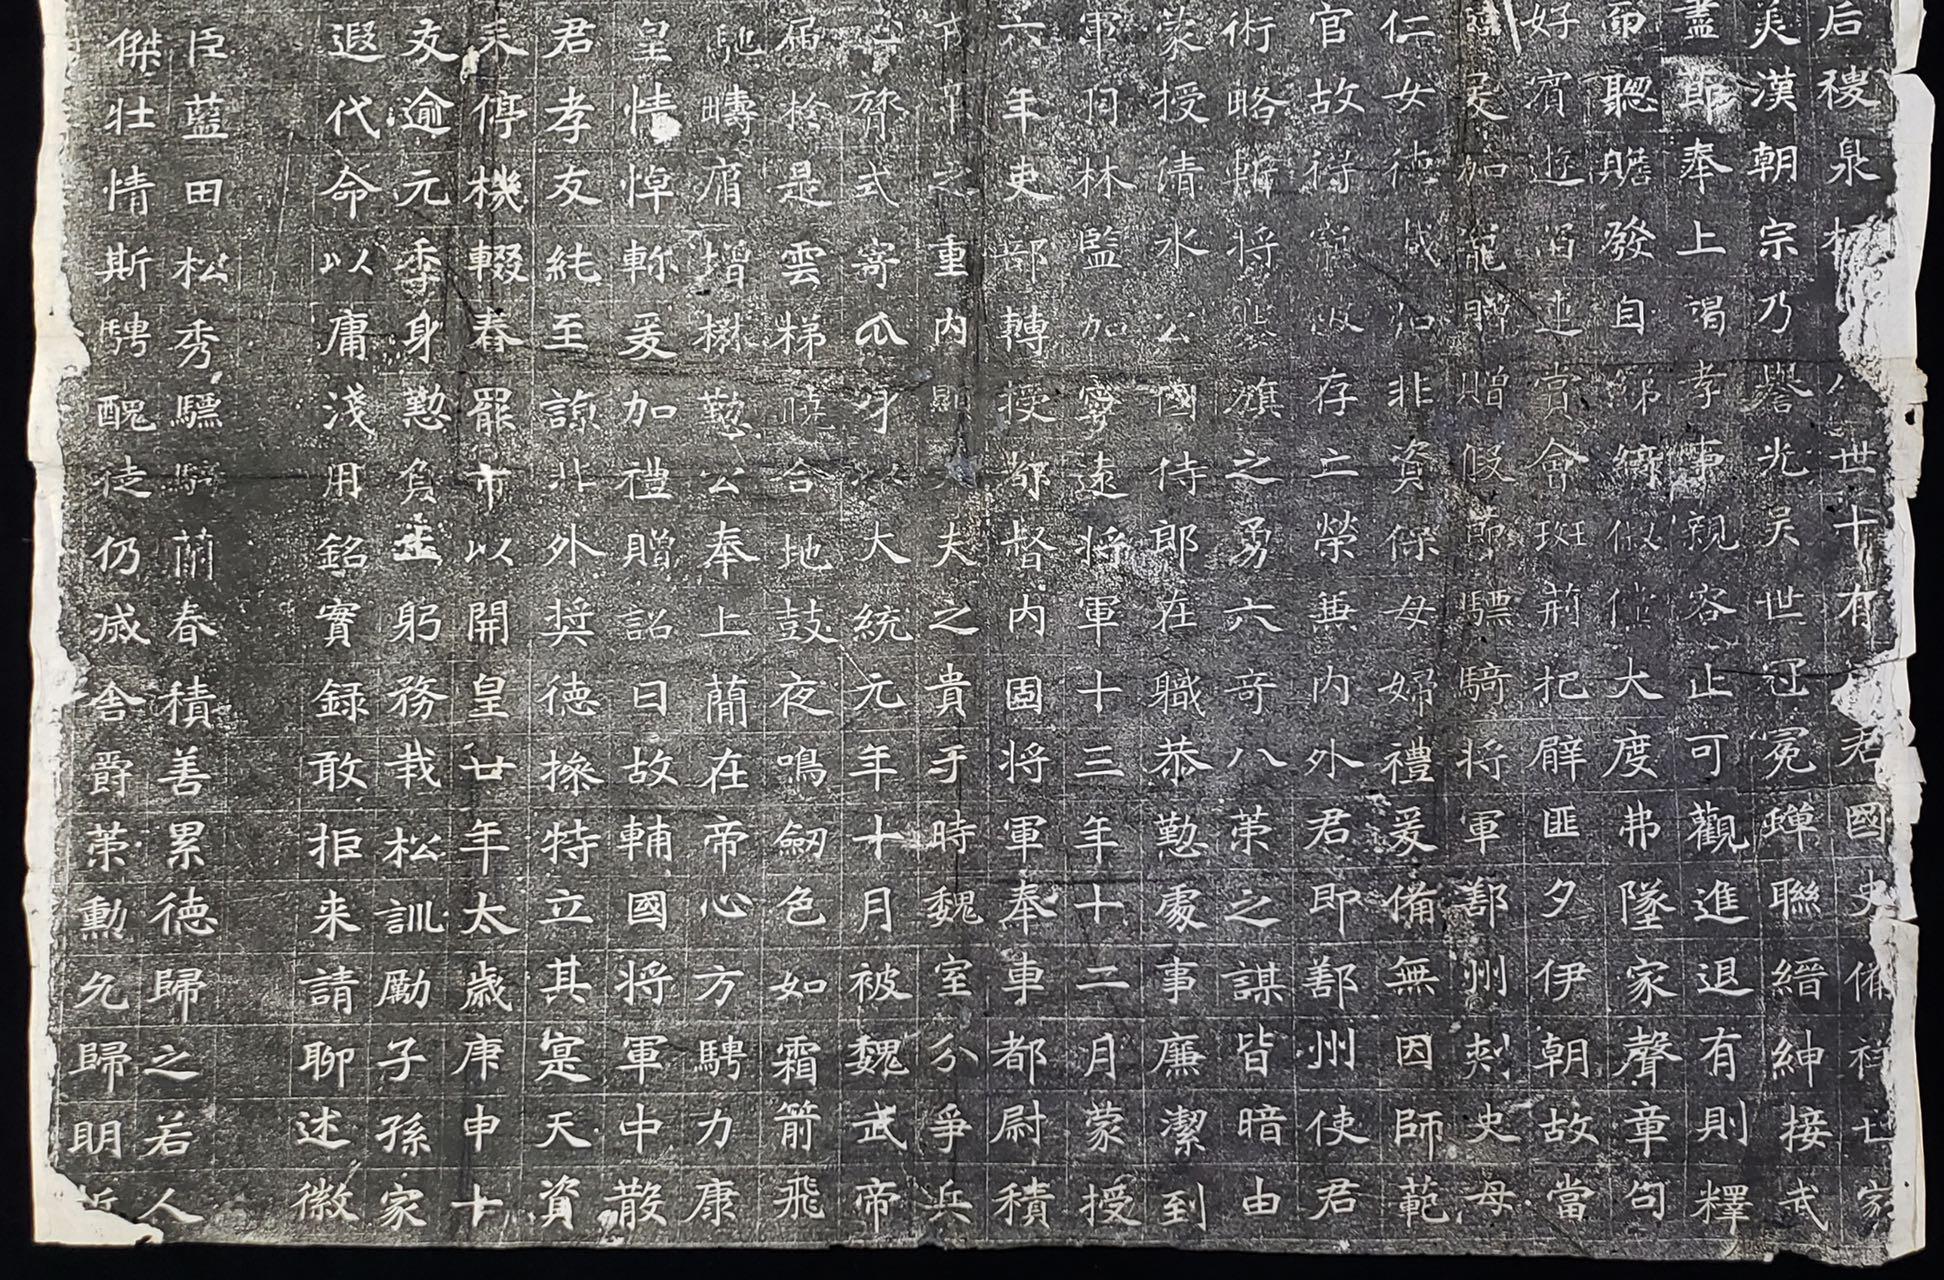 后稷泉世十有君國史備祥七家
美漢朝宗乃譽光吴世冠冕蟬聯縉紳接武
盡節奉上谒孝事親容止可觀進退有則釋
而聰贍發自綈大度弗墜家聲章句
好賓遊賞會班荊把臂匪夕伊朝故當
加寵聘贈假節驃騎將軍鄯州刾史母
仁女德咸加非資保母婦禮爰備無因師範
官故得存亡榮無内外君即鄯州使君
術略將旗之勇六奇八策之謀皆暗由
蒙授清水公國侍郎在職恭懃處事廉潔到
軍羽林監加寧遠將軍十三年十二月蒙授
六年吏部轉授都督内固將軍奉車都尉積
之重内顯大夫之貴于時魏室分爭兵
心膂式寄爪牙以大統元年十月被魏武帝
届於是雲梯曉合地鼓夜鳴劒色如霜箭飛
馳疇庸增懋懃公奉上簡在帝心方騁力康
皇情悼軫爰加禮贈詔曰故輔國將軍中散
君孝友純至諒北外奨德操特立其寔天資
未停機輟春罷市以開皇廿年太歲庚申十
友逾元季身懃負土躬務栽松訓勵子孫家
遐代命以庸淺用銘實録敢拒来請聊述徽
臣藍田松秀驃騎蘭春積善累德歸之若人
傑壮情斯騁醜徒仍减舎爵策勳允歸明